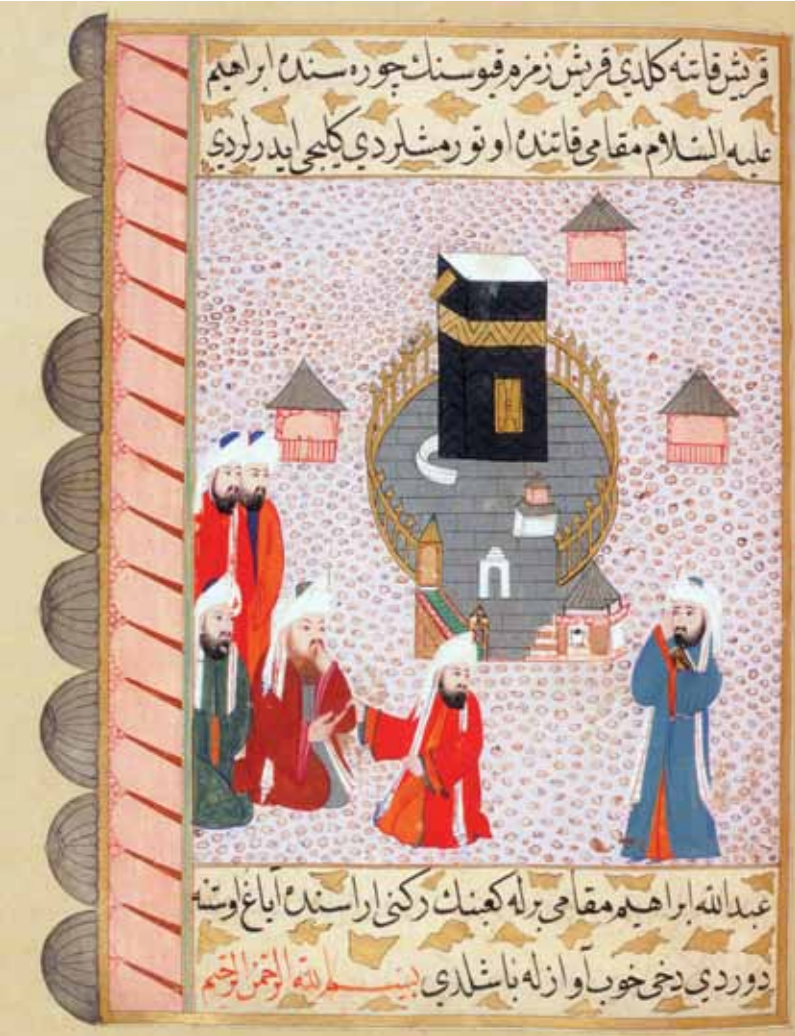 قريش قاتنه كلدي قريش زمزم قپوسنك چوره سنده ابراهيم
عليه السلام مقامي قاتنده اوتورمشلردي كليجي ايدرلردي
عبدالله ابراهيم مقامي برله كعبنك ركني اراسنده آياغ اوستنه
دوردي دخي خوب آوازله باشلدي بسم الله الرحمن الرحيم